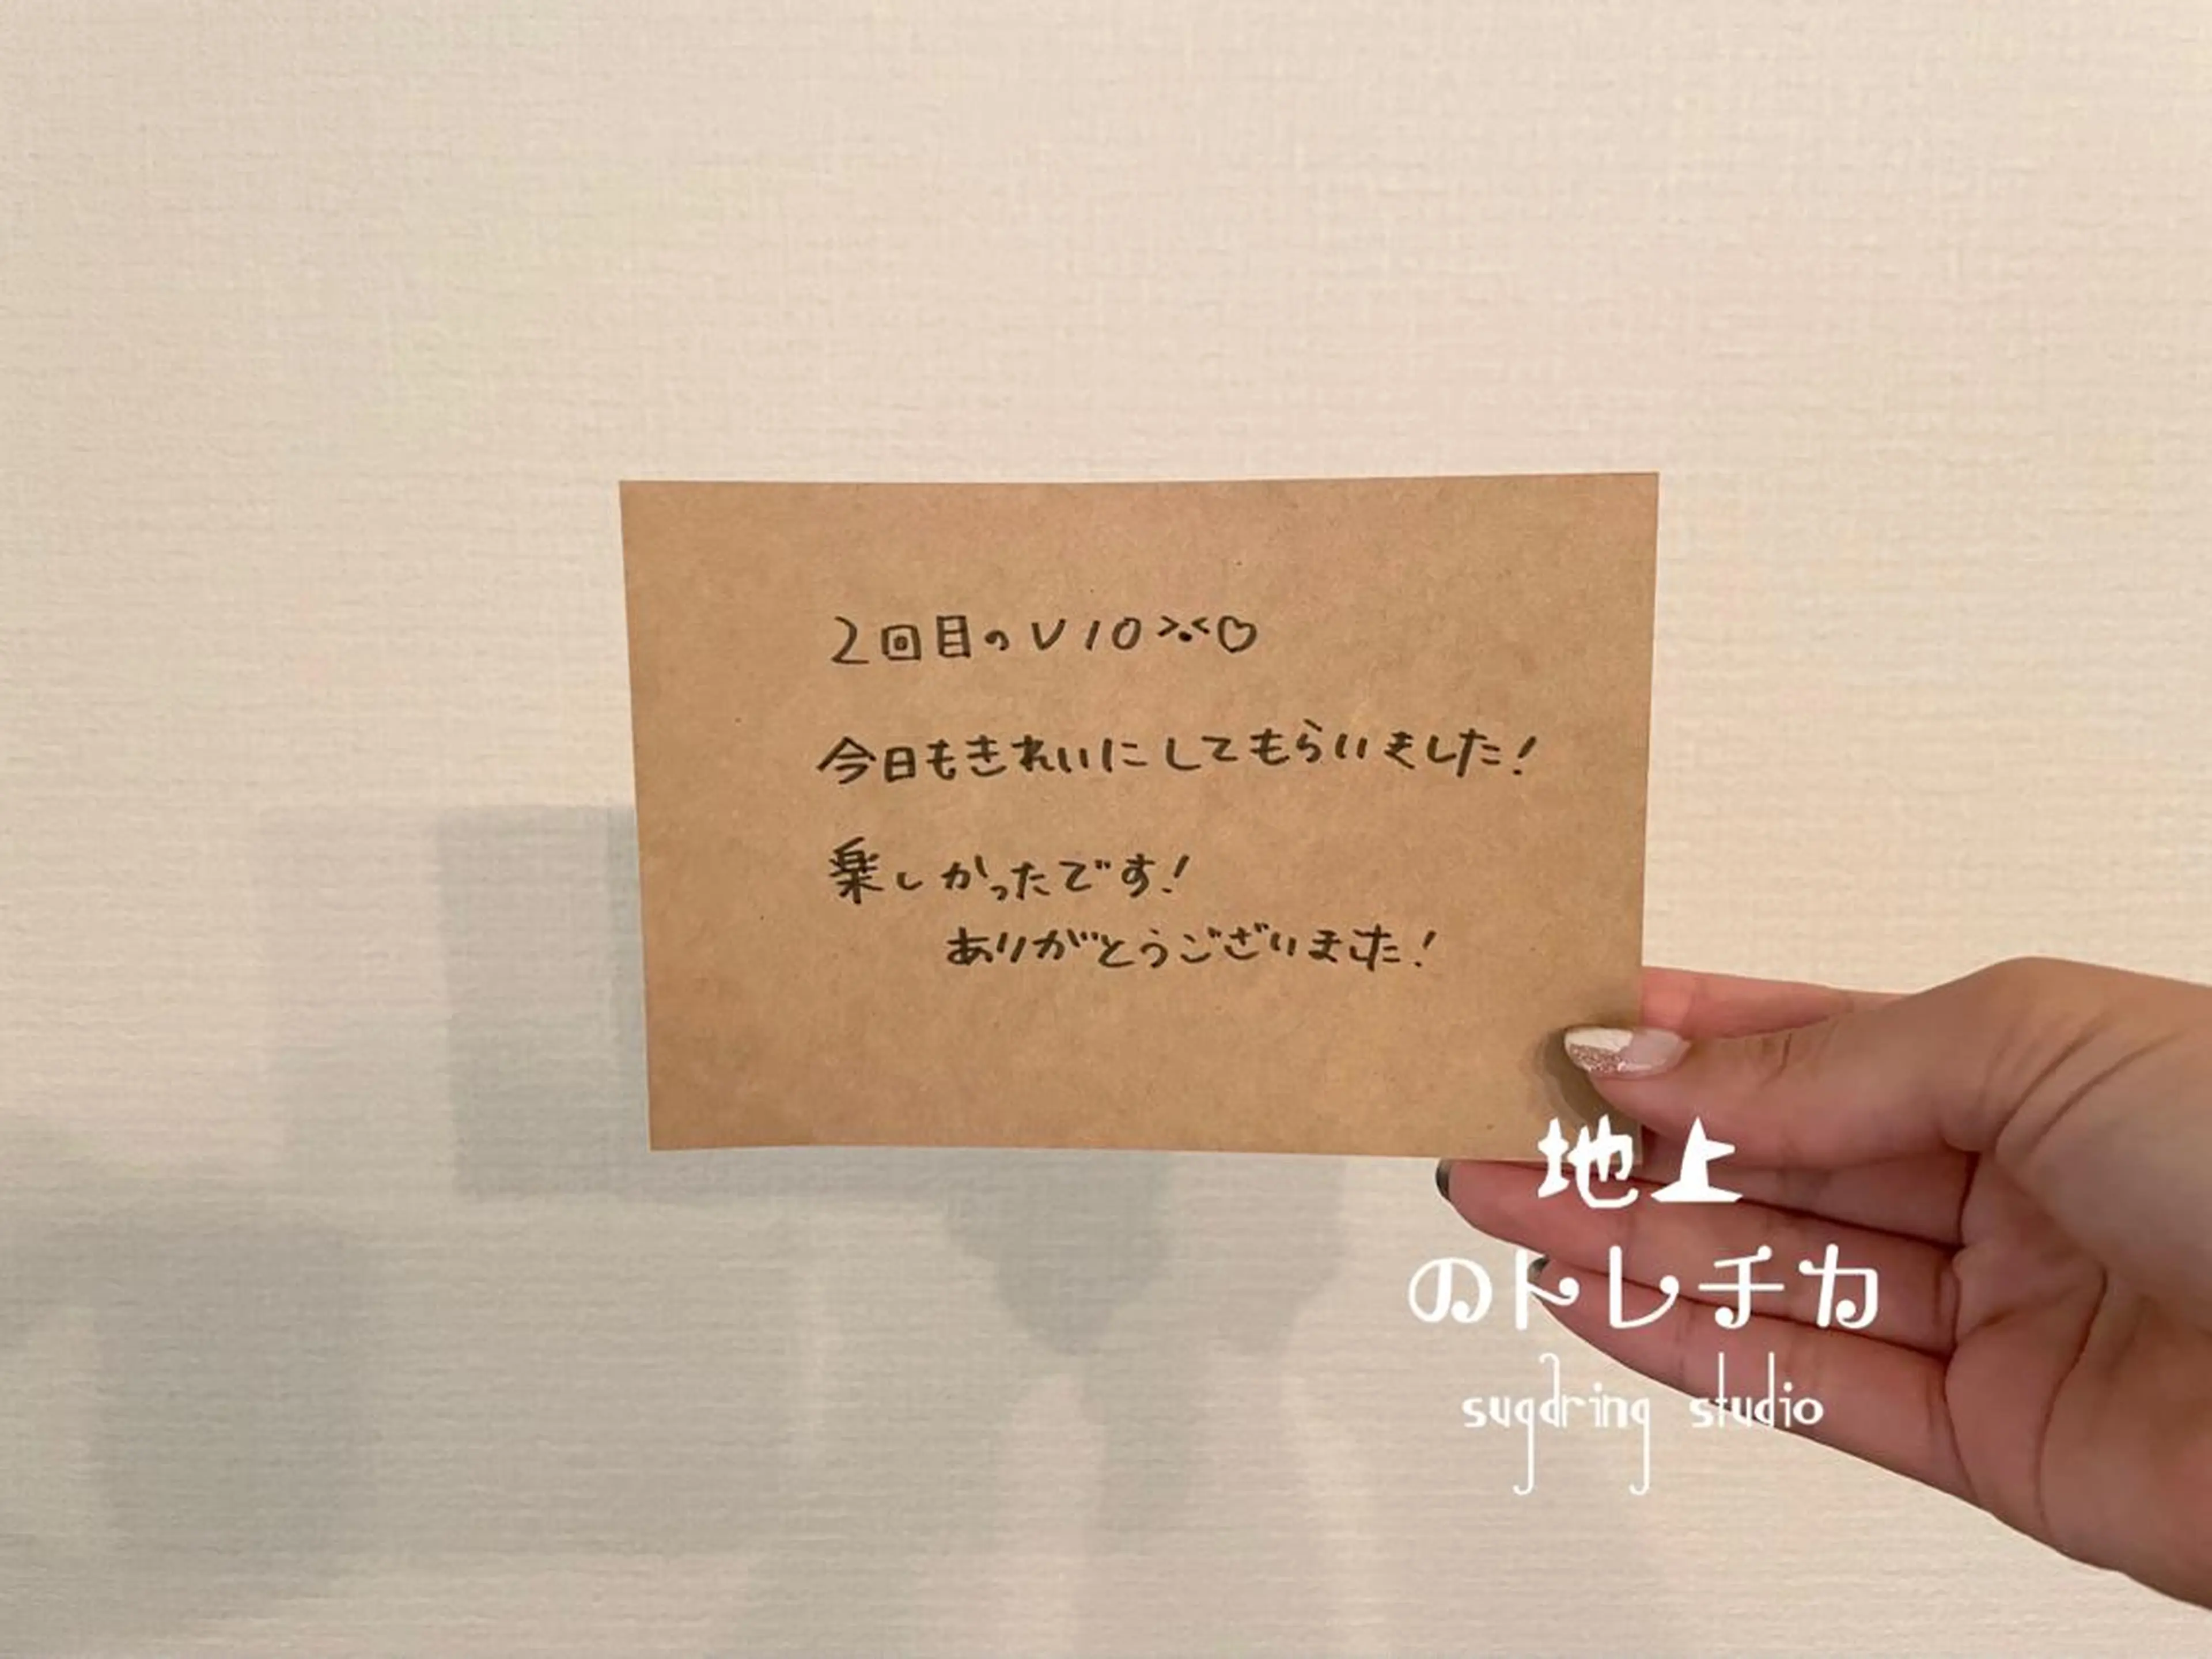 2回目のVIO >.<♡
今日もきれいにしてもらいました!
楽しかったです!
ありがとうございました!
地上
のトレチカ
sugaring studio